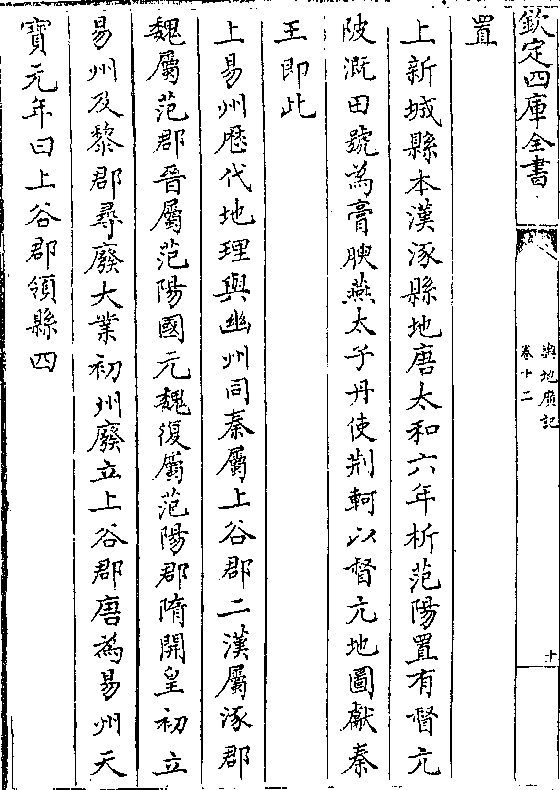 欽定四庫全書
輿地廣記
卷十二
十
置
上新城縣本漢涿縣地唐太和六年析范陽置有督亢
陂溉田號為膏腴燕太子丹使荆軻以督亢地圖獻秦
王即此
上易州歴代地理與幽州同秦屬上谷郡二漢屬涿郡
魏屬范郡晉屬范陽國元魏復屬范陽郡隋開皇初立
易州及黎郡尋廢大業初州廢立上谷郡唐為易州天
寶元年曰上谷郡領縣四